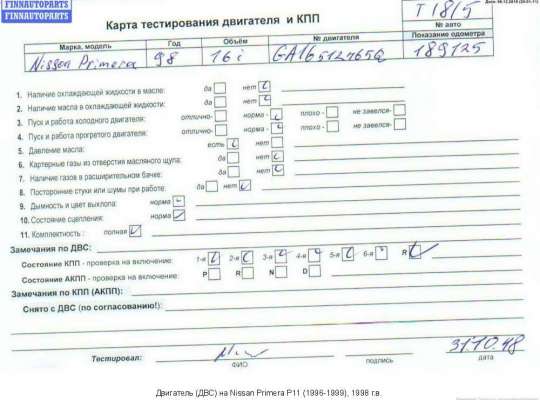 FINNAUTOPARTS
FINNAUTOPARTS
Карта тестирования двигателя и КПП
T 1815
№ авто
Марка, модель Год Объём № двигателя Показание одометра
Nissan Primera 98 16i GA16512765Q 189125
1. Наличие охлаждающей жидкости в масле: да нет
2. Наличие масла в охлаждающей жидкости: да нет
3. Пуск и работа холодного двигателя: отлично- норма - плохо - не завелся-
4. Пуск и работа прогретого двигателя: отлично- норма - плохо - не завелся-
5. Давление масла: есть нет
6. Картерные газы из отверстия масляного щупа: да нет
7. Наличие газов в расширительном бачке: да нет
8. Посторонние стуки или шумы при работе: да нет
9. Дымность и цвет выхлопа: норма
10. Состояние сцепления: норма
11. Комплектность : полная
Замечания по ДВС:
Состояние КПП - проверка на включение: 1-я 2-я 3-я 4-я 5-я 6-я R
Состояние АКПП - проверка на включение: P R N D
Замечания по КПП (АКПП):
Снято с ДВС (по согласованию!):
Тестировал: 31.10.18
ФИО подпись дата
Двигатель (ДВС) на Nissan Primera P11 (1996-1999), 1998 г.в.